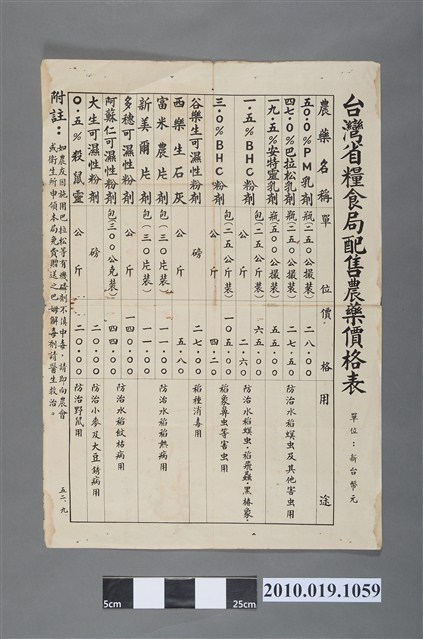 台灣省糧食局配售農藥價格表
單位：新台幣元
農藥名稱 單位 價格 用途
五〇·〇％PM乳劑 瓶(二五〇公撮裝) 二八·〇〇
四七·〇％巴拉松乳劑 瓶(二五〇公撮裝) 二七·五〇 防治水稻螟虫及其他害虫用
一九·五％安特靈乳劑 瓶(五〇〇公撮裝) 五五·〇〇
一·五％BHC粉劑 包(二五公斤裝) 六五·〇〇
公斤 二·六〇 防治水稻螟虫·稻飛蝨·黑椿象·
三·〇％BHC粉劑 包(二五公斤裝) 一〇五·〇〇 稻象鼻虫等害虫用
公斤 四·二〇
谷樂生可濕性粉劑 磅 二七·〇〇 稻種消毒用
西樂生石灰 公斤 五·八〇
富米農片劑 包(三〇片裝) 一一·〇〇 防治水稻稻熱病用
新美爾片劑 包(三〇片裝) 一一·〇〇
多穗可濕性粉劑 公斤 一四〇·〇〇
阿蘇仁可濕性粉劑 包(三〇〇公克裝) 四四·〇〇 防治水稻紋枯病用
大生可濕性粉劑 磅 二〇·〇〇 防治小麥及大豆銹病用
〇·五％殺鼠靈 公斤 二〇·〇〇 防治野鼠用
附註：如農友因施用巴拉松等有機磷劑不慎中毒，請即向農會
或衛生所申領本局免費贈送之巴姆解毒劑請醫生救治。
五二、九
5cm
25cm
2010.019.1059